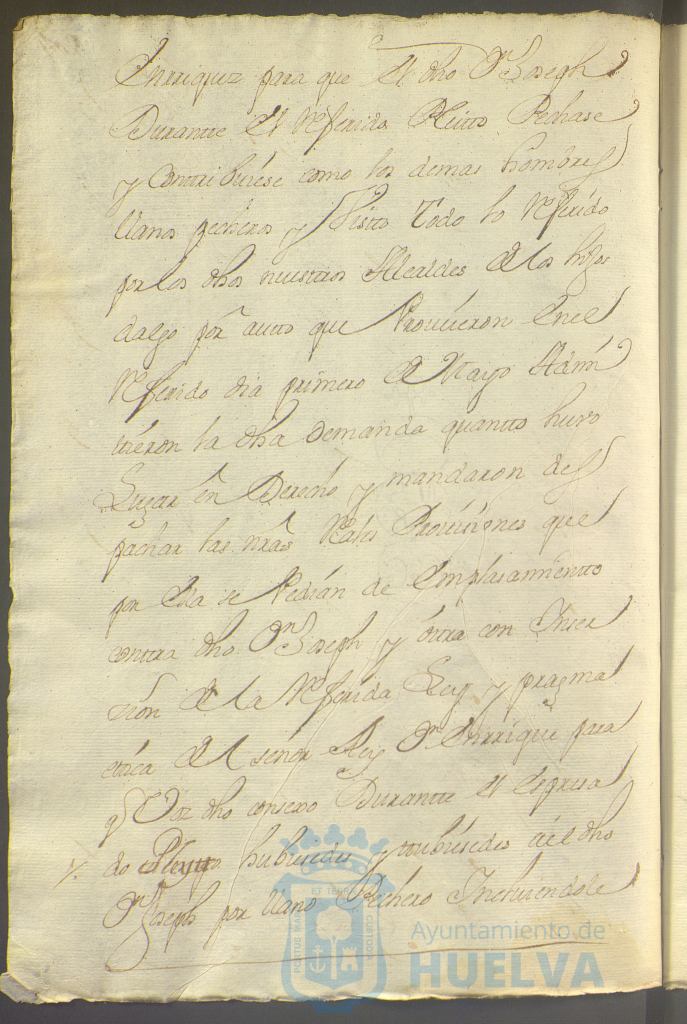 Enrriquez para que El dho Dn Joseph
Durante El Referido Pleitto Pechase
y Contribuiese como los demas hombres
llanos pecheros y Visto Todo lo Referido
por los dhos nuestros Alcaldes de los hijos
dalgo por autto que Proveieron En el
Referido dia primero de Mayo Admi
ttieron la dha demanda quantto huvo
Lugar en Derecho y mandaron des
pachar las nras Reales Provisiones que
por Ella se Pedian de Emplasamientto
contra dho Dn Joseph y otra con Inser
zion de la Referida Ley y pragma
ttica del señor Rey Dn Enrrique para
q Voz dho consexo Durante el Expresa
do Pleytto hubiesedes y ttubiesedes a el dho
Dn Joseph por llano Pechero Incluiendole
PORTUS MARIS ET TERRAE CUSTODIA
Ayuntamiento de
HUELVA